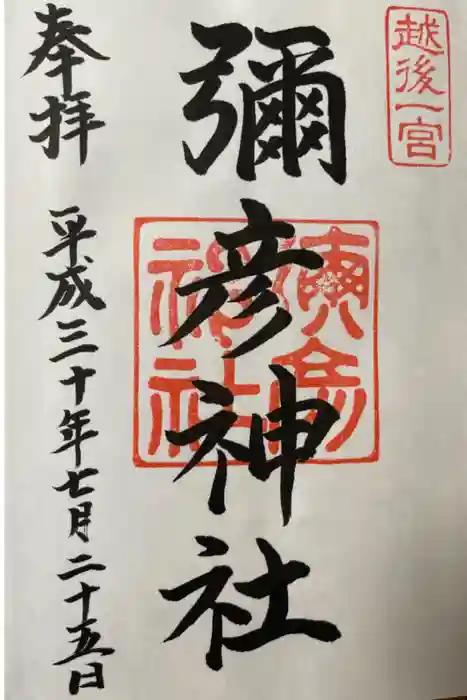 越後一宮
彌彦神社
彌彦神社
奉拝
平成三十年七月二十五日